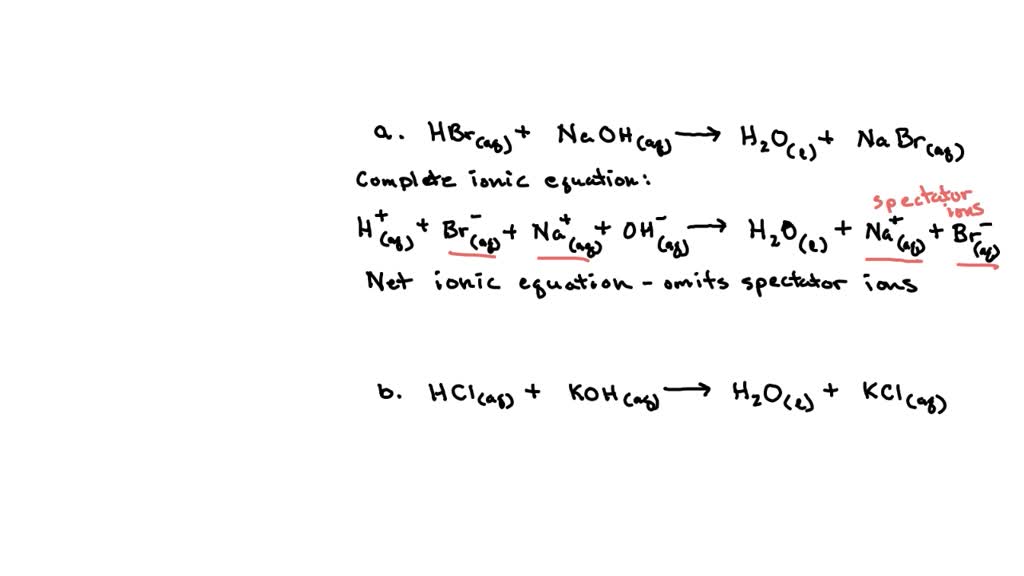 a. HBr(aq) + NaOH(aq) → H₂O(l) + NaBr(aq)
Complete ionic equation:
spectator
ions
H⁺(aq) + Br⁻(aq) + Na⁺(aq) + OH⁻(aq) → H₂O(l) + Na⁺(aq) + Br⁻(aq)
Net ionic equation - omits spectator ions
b. HCl(aq) + KOH(aq) → H₂O(l) + KCl(aq)